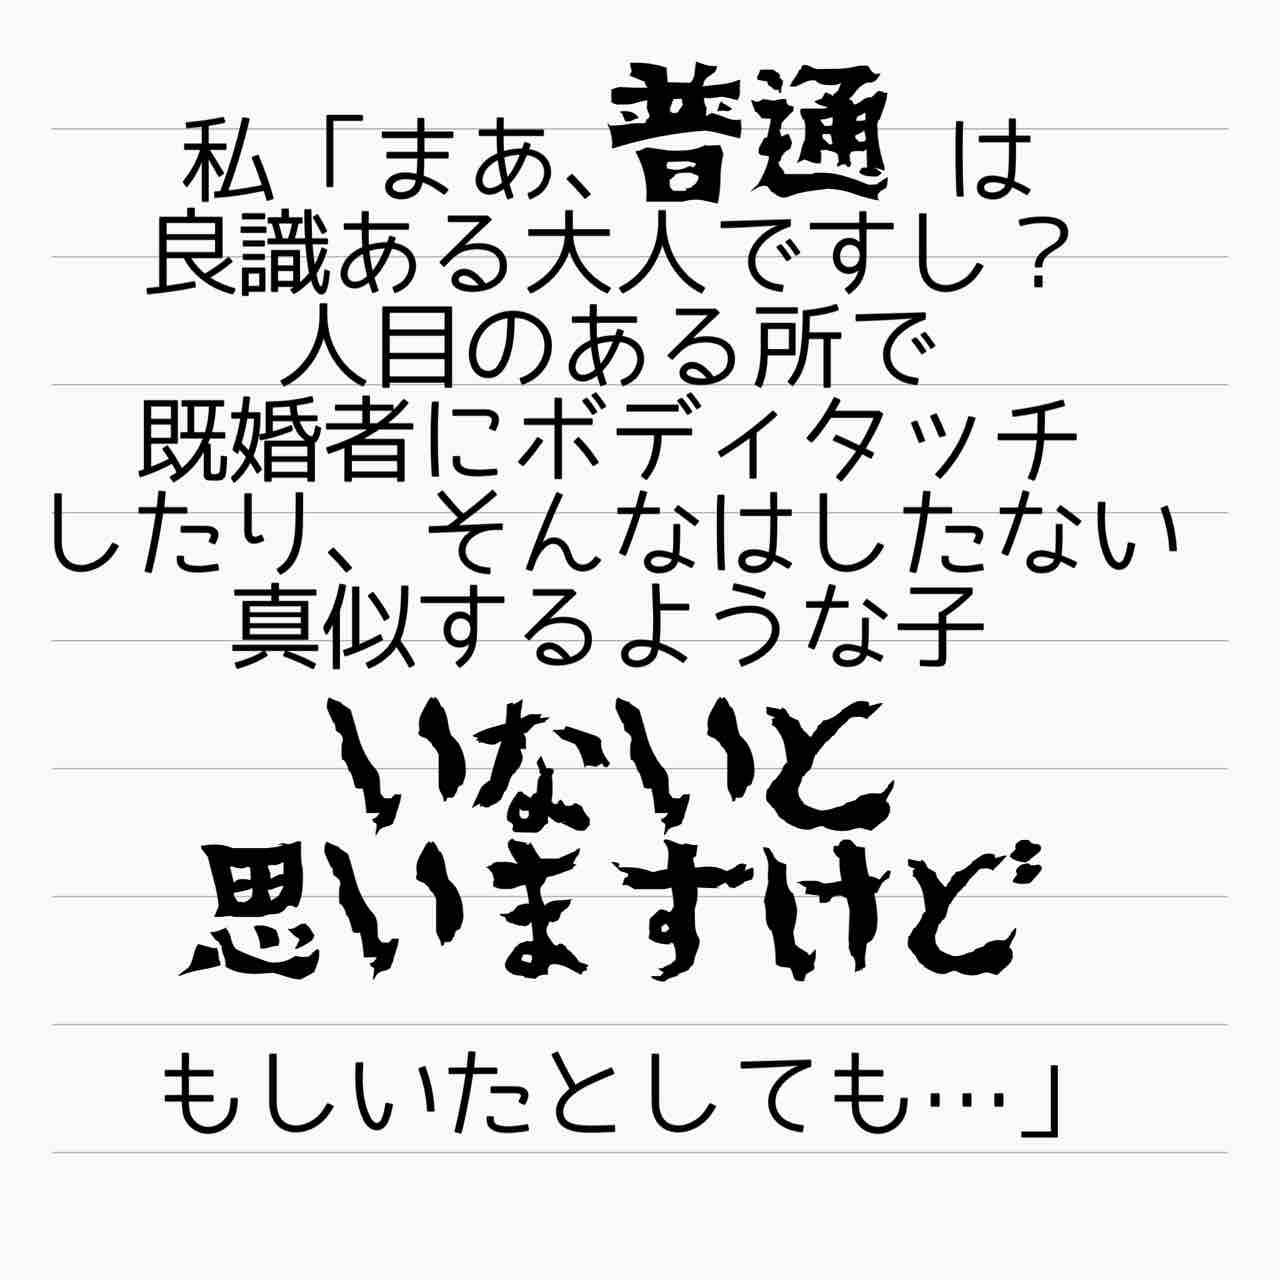 私「まあ、普通は
良識ある大人ですし？
人目のある所で
既婚者にボディタッチ
したり、そんなはしたない
真似するような子
いないと
思いますけど
もしいたとしても…」